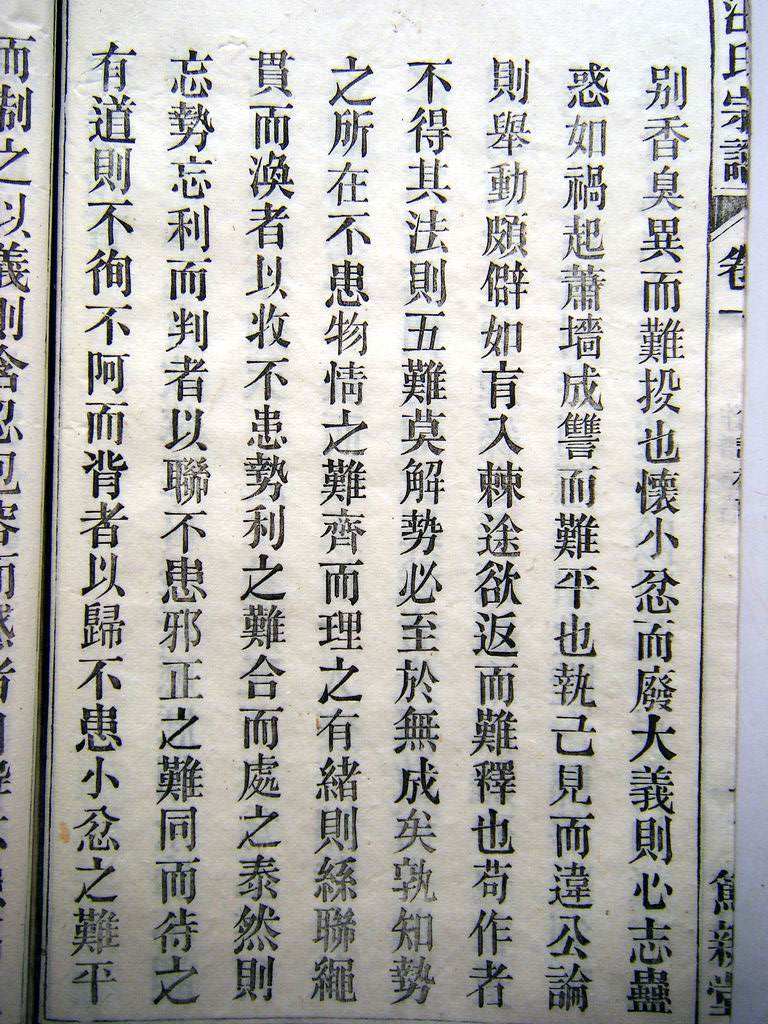 氏宗譜 卷一
別香臭異而難投也懷小忿而廢大義則心志蠱
惑如禍起蕭墻成讐而難平也執己見而違公論
則舉動頗僻如盲入棘途欲返而難釋也苟作者
不得其法則五難莫解勢必至於無成矣孰知勢
之所在不患物情之難齊而理之有緒則絲聯繩
貫而渙者以收不患勢利之難合而處之泰然則
忘勢忘利而判者以聯不患邪正之難同而待之
有道則不徇不阿而背者以歸不患小忿之難平
而制之以義則含忍包容而惑者